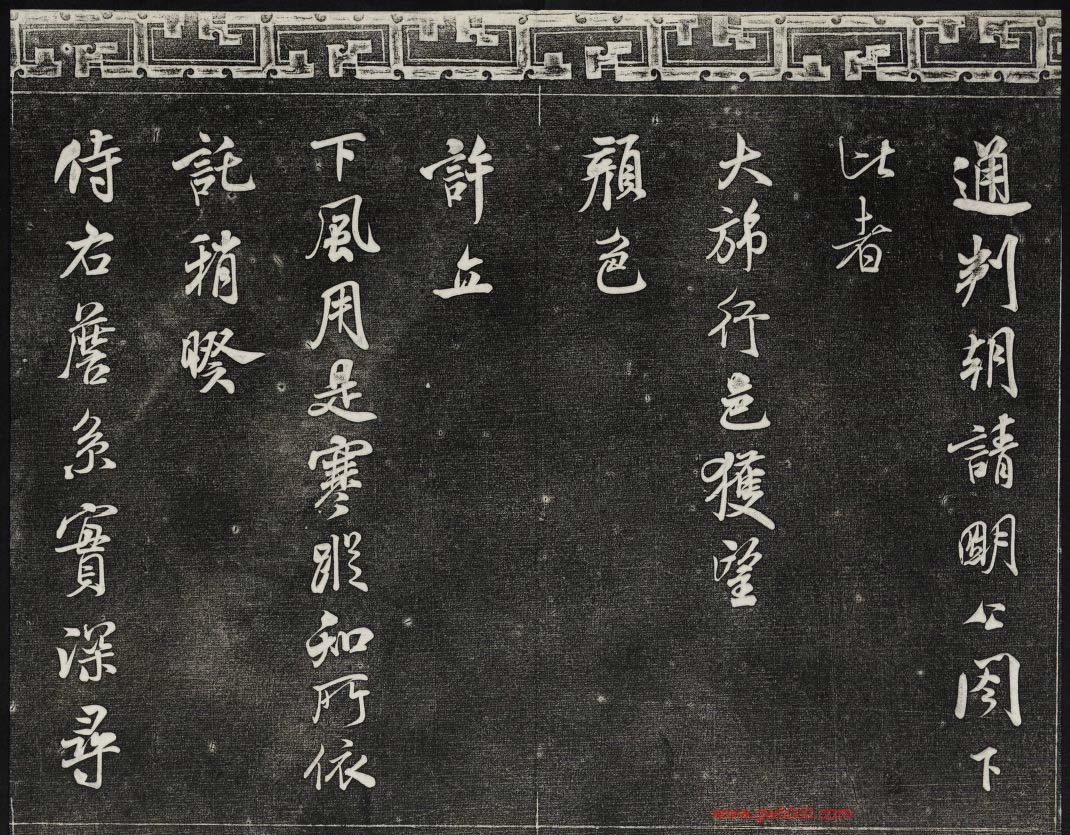 通判朝請明公閣下
比者
大旆行邑獲望
顏色
許立
下風用是寒蹤知所依
託稍暌
侍右詹系實深尋